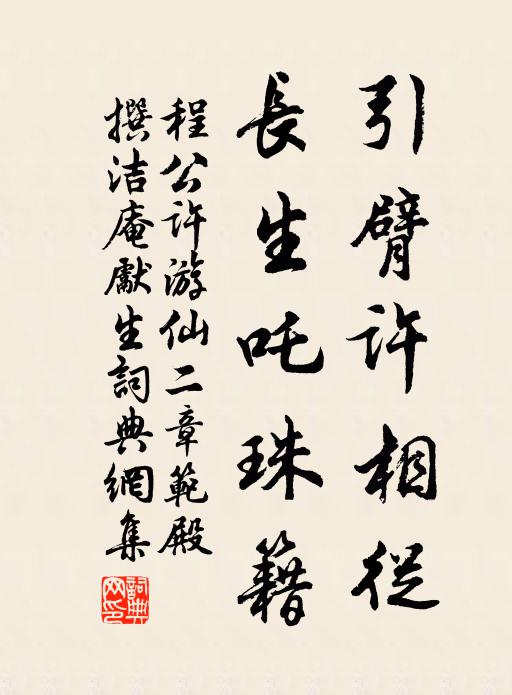 引臂許相從
長生吒珠籍
程公許游仙二章範殿
撰洁庵獻生詞典網集